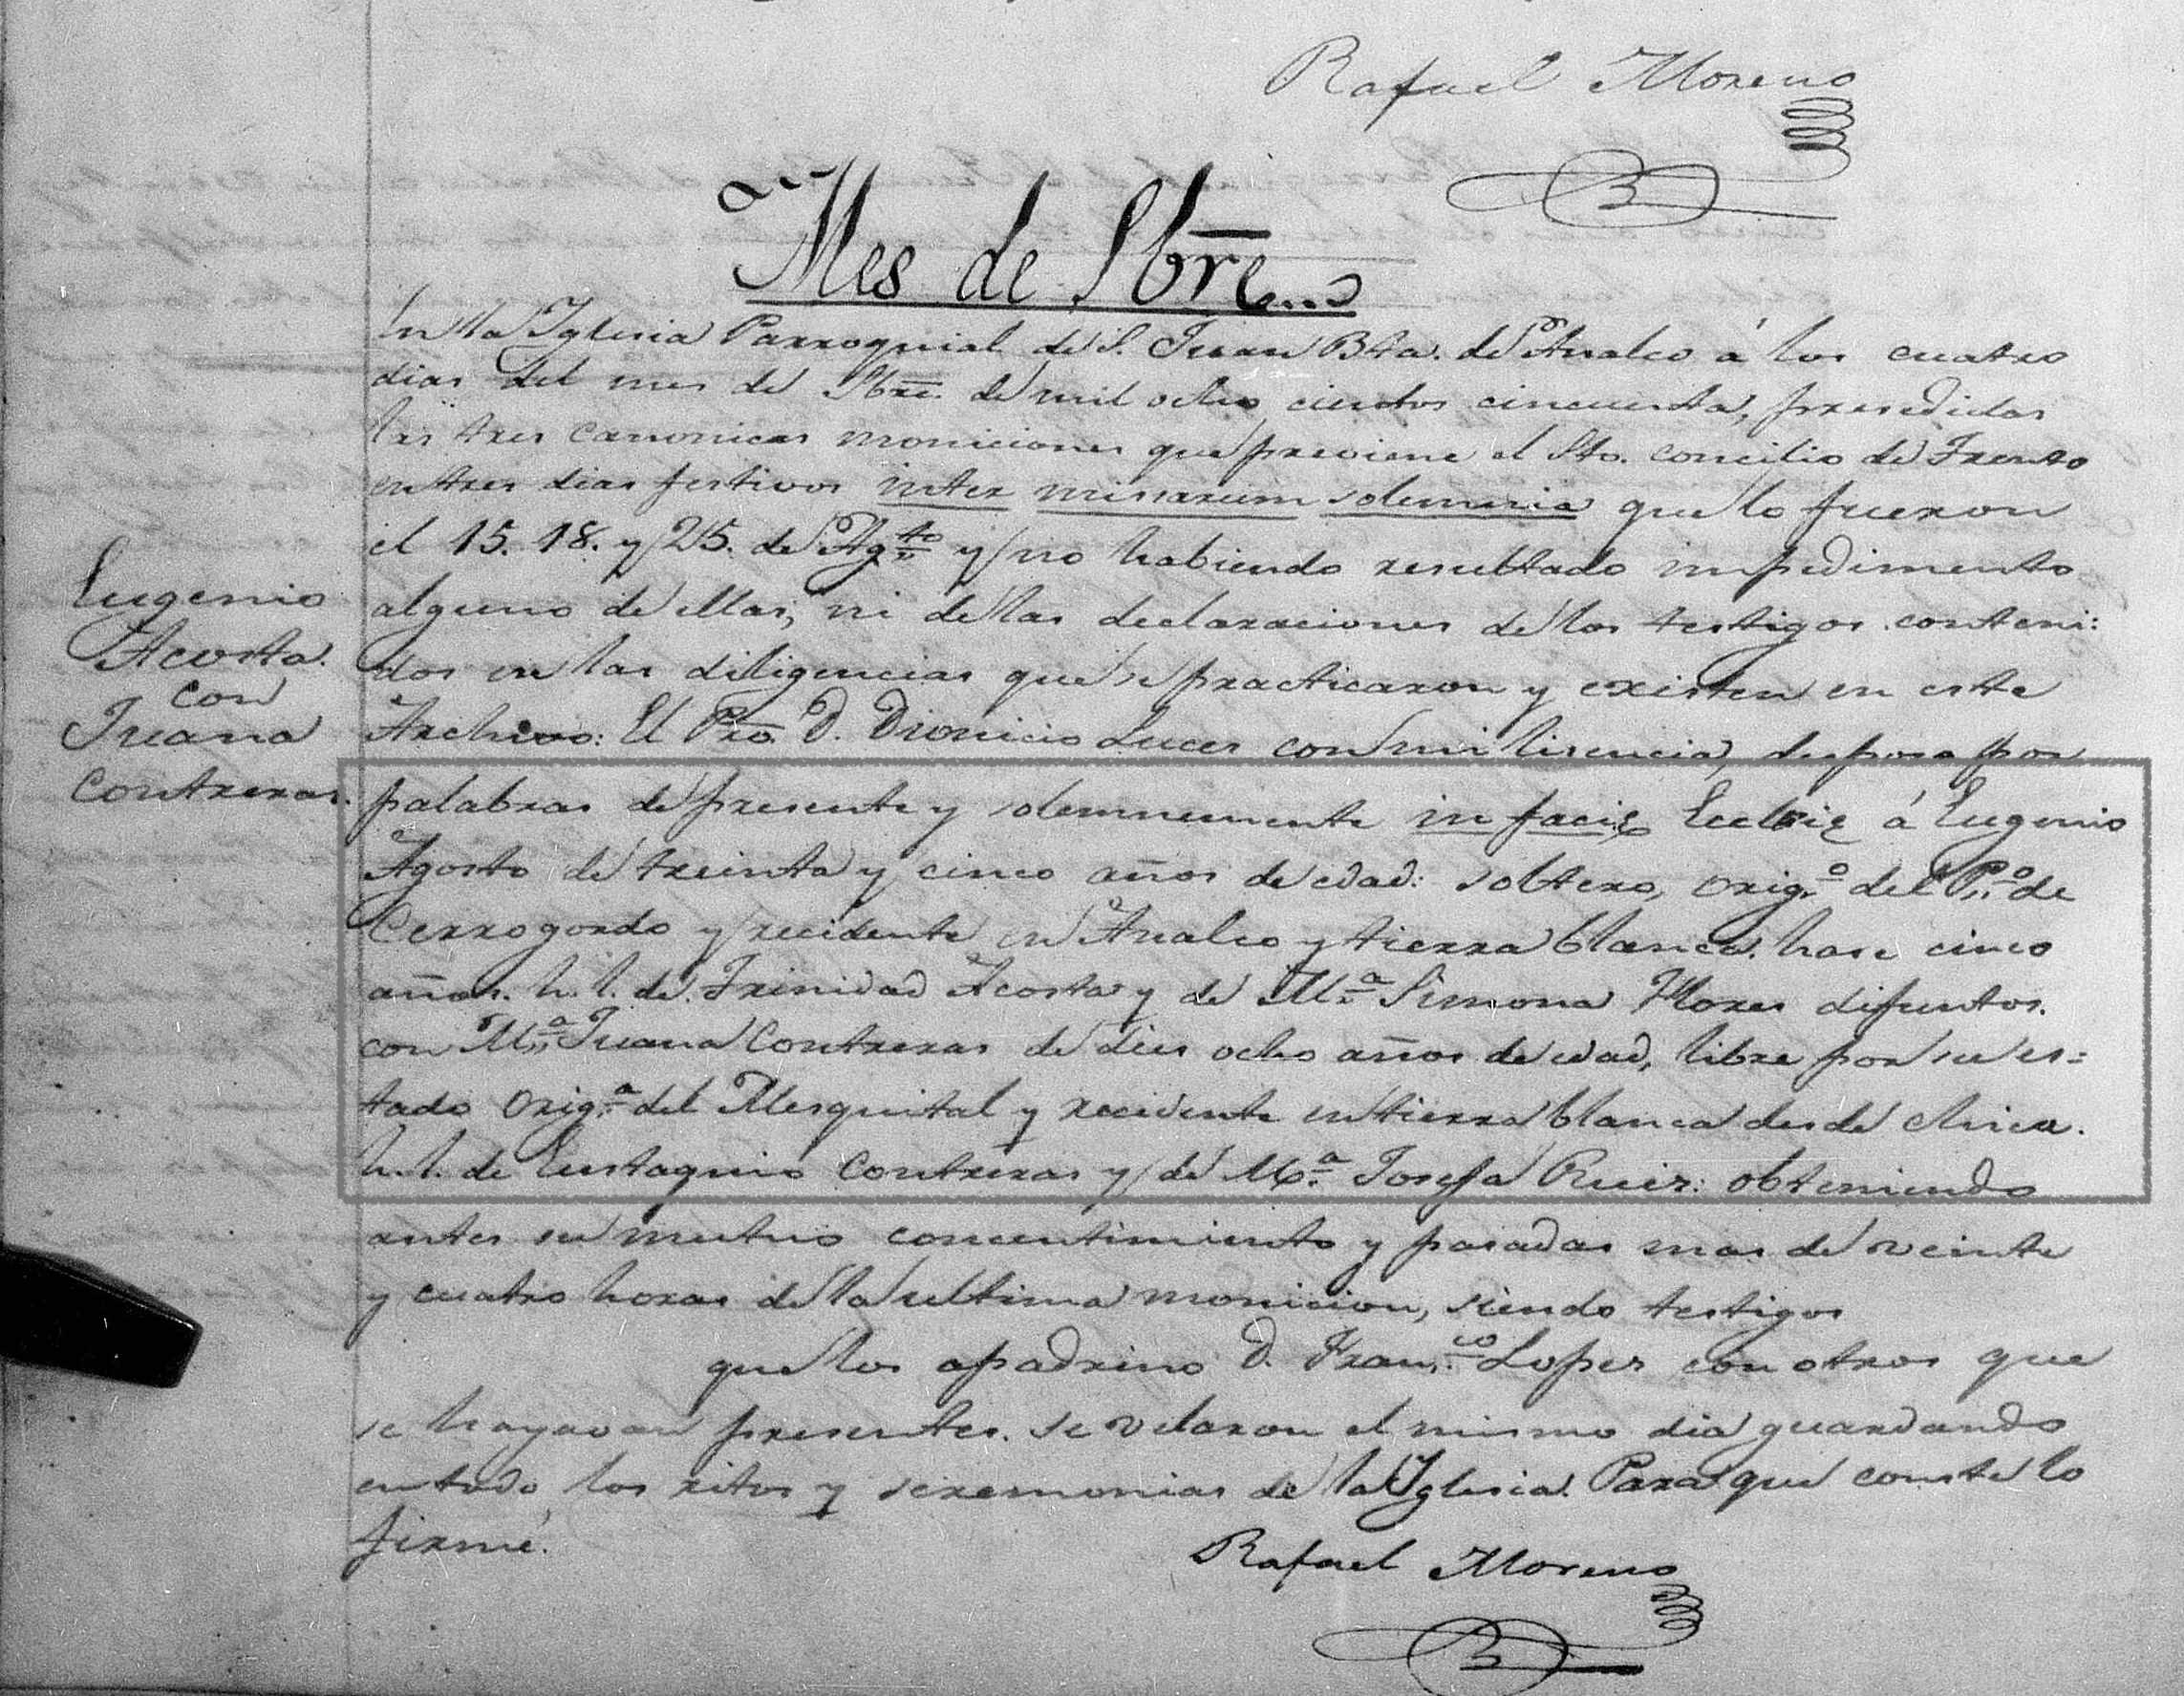 Rafael Moreno
Mes de Sbre...
En la Yglesia Parroquial de S. Juan Bta. de Analco á los cuatro
dias del mes de Sbre. de mil ocho cientos cincuenta, presedidas
las tres canonicas moniciones que previene el Sto. concilio de Trento
en tres dias festivos inter missarum solemnia que lo fueron
el 15. 18. y 25. de Agto y no habiendo resultado impedimento
alguno de ellas, ni de las declaraciones de los testigos conteni:
dos en las diligencias que se practicaron y existen en este
Archivo: El Pro. D. Dionicio Luces con mi lisencia, desposo por
Eugenio
Acosta.
con
Juana
Contreras.
palabras de presente y solemnemente in facie Eccleie á Eugenio
Agosto de treinta y cinco años de edad: soltero, orig.o del P.o de
Cerrogordo y recidente en Analco y tierra blanca. hase cinco
años. h. l. de Trinidad Acosta y de M.a Simona Flores difuntos.
con M.a Juana Contreras de dies ocho años de edad, libre por su es=
tado orig.a del Mesquital y recidente en tierra blanca desde chica.
h. l. de Eustaquio Contreras y de Ma. Josefa Ruiz: obteniendo
antes su mutuo concentimiento y pasadas mas de veinte
y cuatro horas de la ultima monicion, siendo testigos
que los apadrino D. Fran.co Lopes con otros que
se hayavan presentes. se velaron el mismo dia guardando
en todo los ritos y seremonias de la Yglesia. Para que conste lo
firmé.
Rafael Moreno